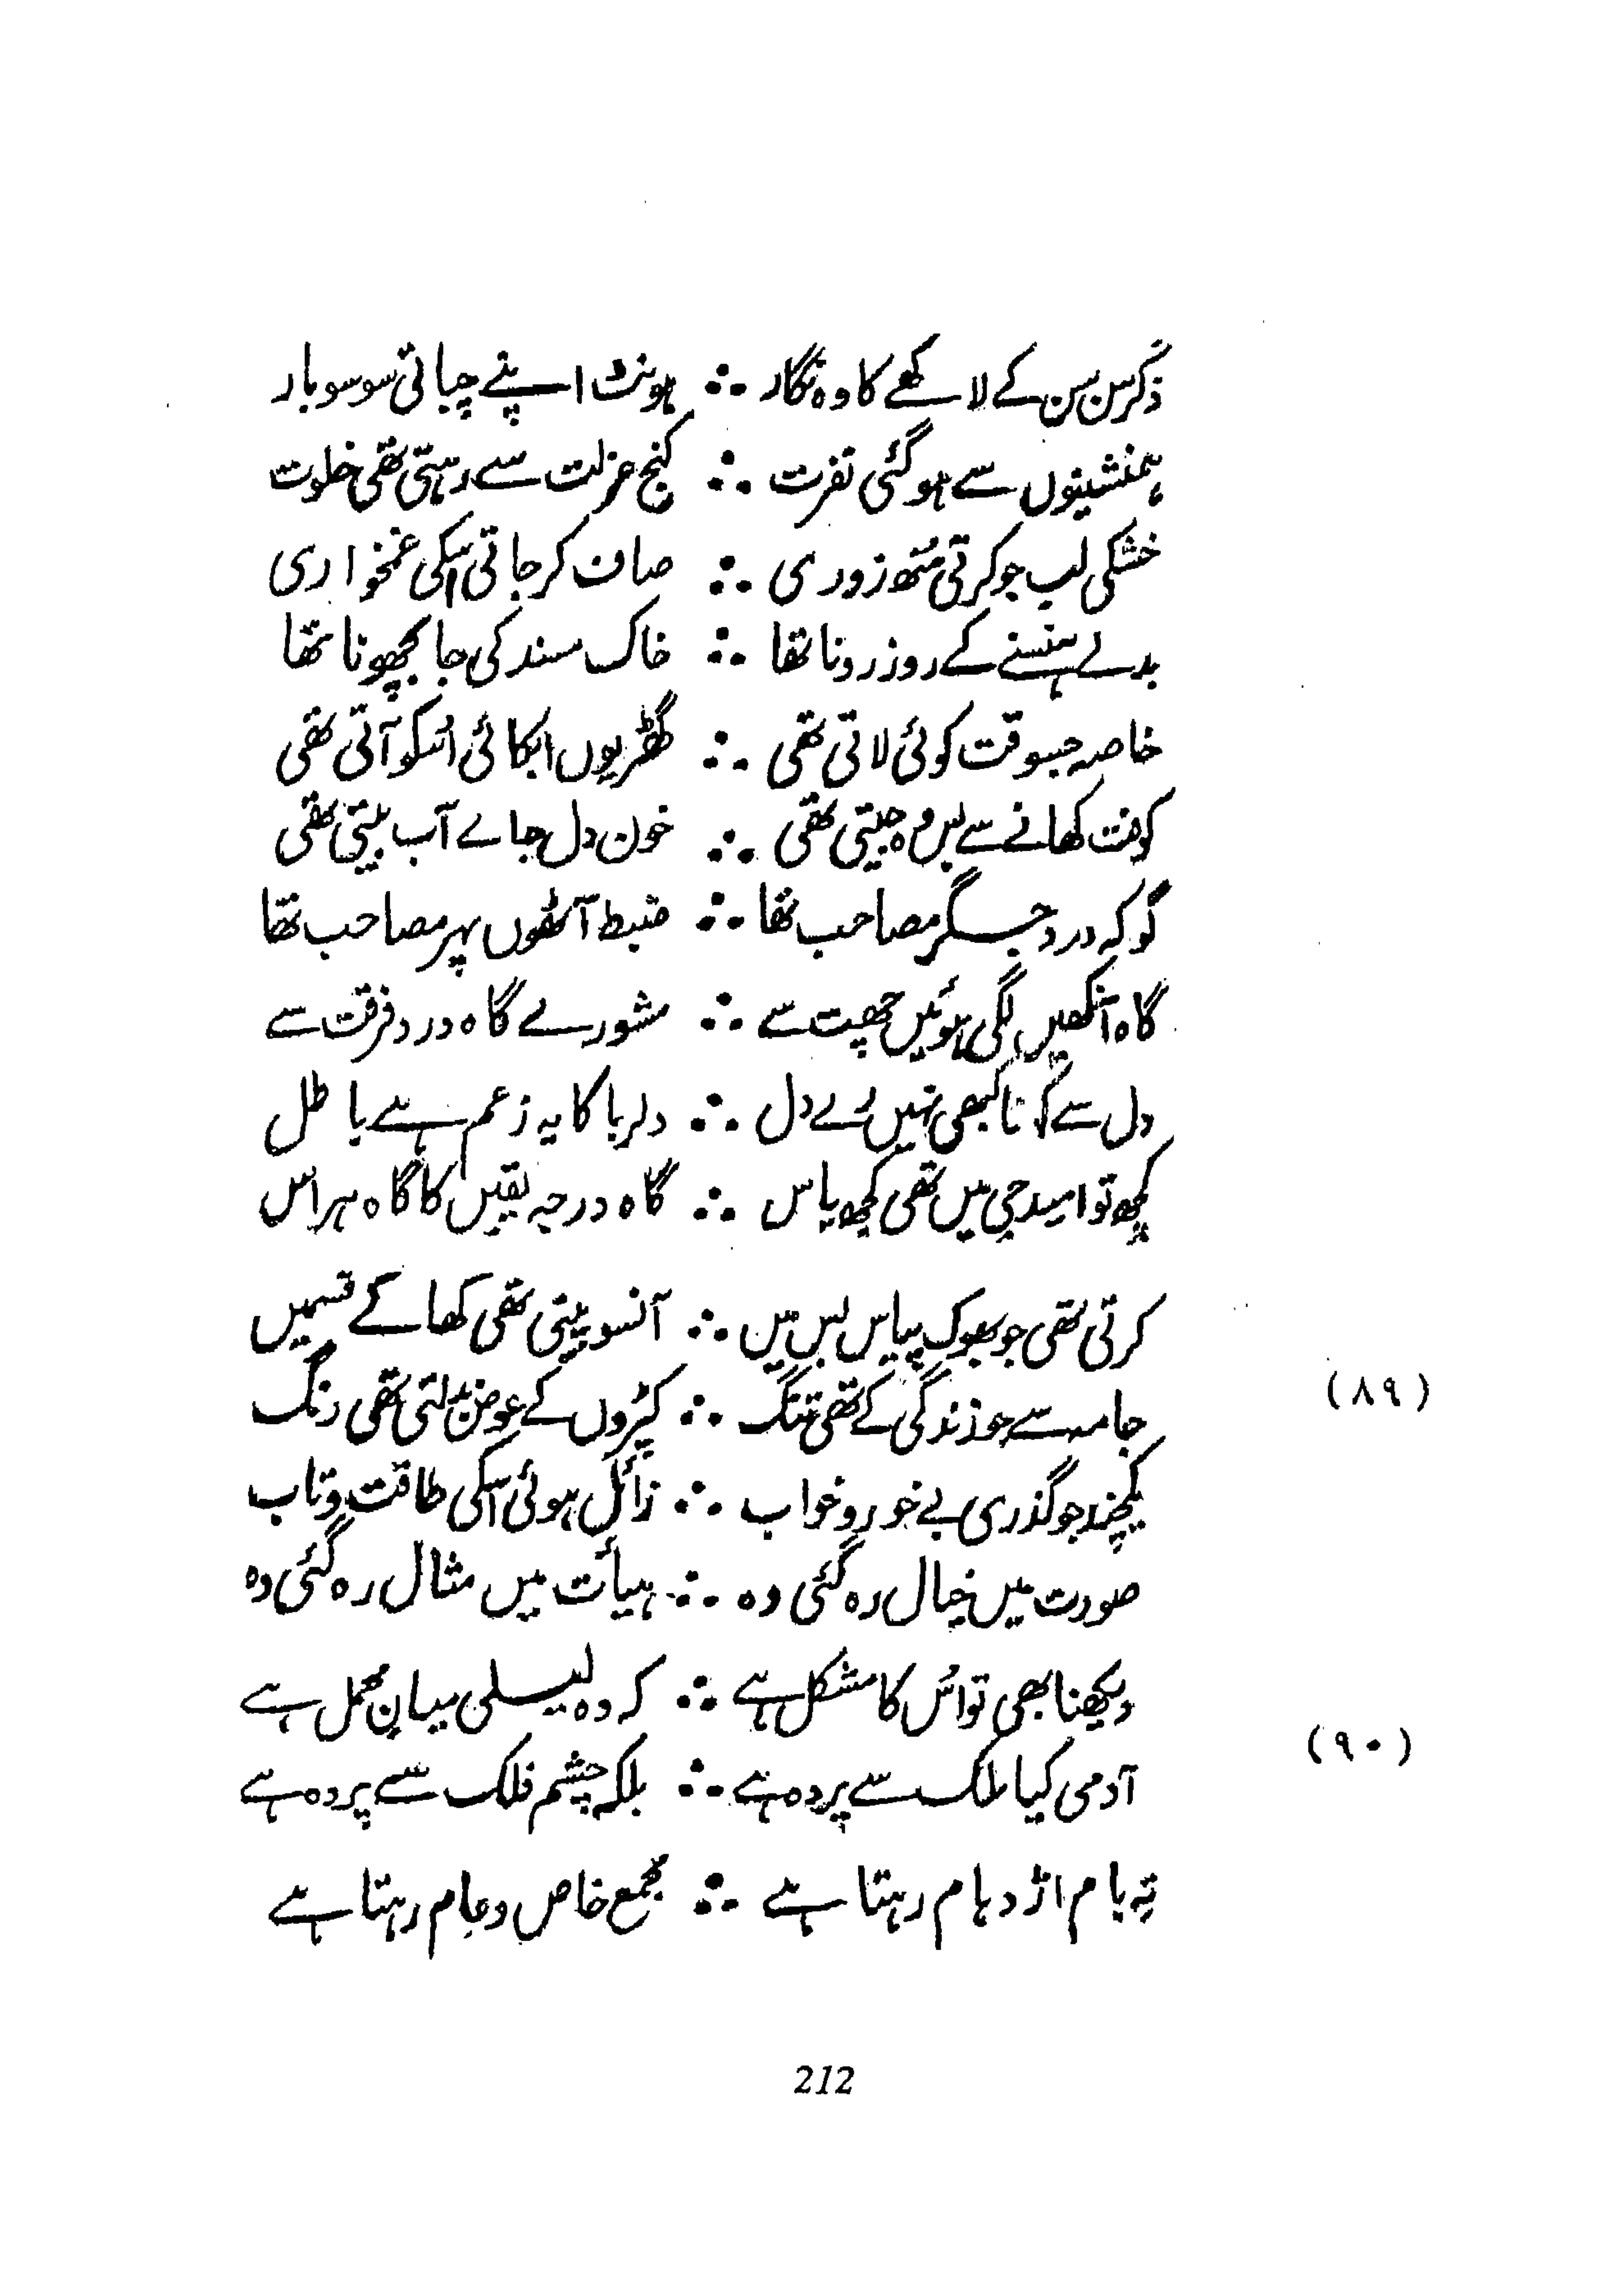 ذکر سن سن کے لاکھے کا وہ نگار ∴ ہونٹ اپنے چباتی سو سو بار
ہمنشینوں سے ہوگئی نفرت ∴ کنج عزلت سے رہتی تھی خلوت
خشکی لب جو کرتی منھ زوری ∴ صاف کر جاتی اسکی غمخواری
بدلے ہنسنے کے روز رونا تھا ∴ خاک مسند کی جا بچھونا تھا
خاصہ جسوقت کوئی لاتی تھی ∴ گھڑیوں ابکائی اسکو آتی تھی
کوفت کھانے سے بس وہ جیتی تھی ∴ خون دل جاے آب پیتی تھی
گو کہ درد جگر مصاحب تھا ∴ ضبط آٹھوں پہر مصاحب تھا
گاہ آنکھیں لگی ہوئیں چھت سے ∴ مشورے گاہ درد فرقت سے
دل سے کہنا کبھی نہیں اے دل ∴ دلربا کا یہ زعم ہے باطل
کچھ تو امید جی میں تھی کچھ یاس ∴ گاہ درجہ یقیں کا گاہ ہراس
کرتی تھی جو بھوک پیاس بس میں ∴ آنسو پیتی تھی کھا کے قسمیں
جامہ سے جو زندگی کے تھی تنگ ∴ کپڑوں کے عوض بدلتی تھی رنگ (۸۹)
یکچند جو گذری بے خور و خواب ∴ زائل ہوئی اسکی طاقت و تاب
صورت میں خیال رہ گئی وہ ∴ ہیأت میں مثال رہ گئی وہ
دیکھنا بھی تو اُس کا مشکل ہے ∴ کہ وہ لیلی میانِ محمل ہے
آدمی کیا ملک سے پردہ ہے ∴ بلکہ چشم فلک سے پردہ ہے (۹۰)
تہ بام اژدہام رہتا ہے ∴ مجمع خاص و عام رہتا ہے
212